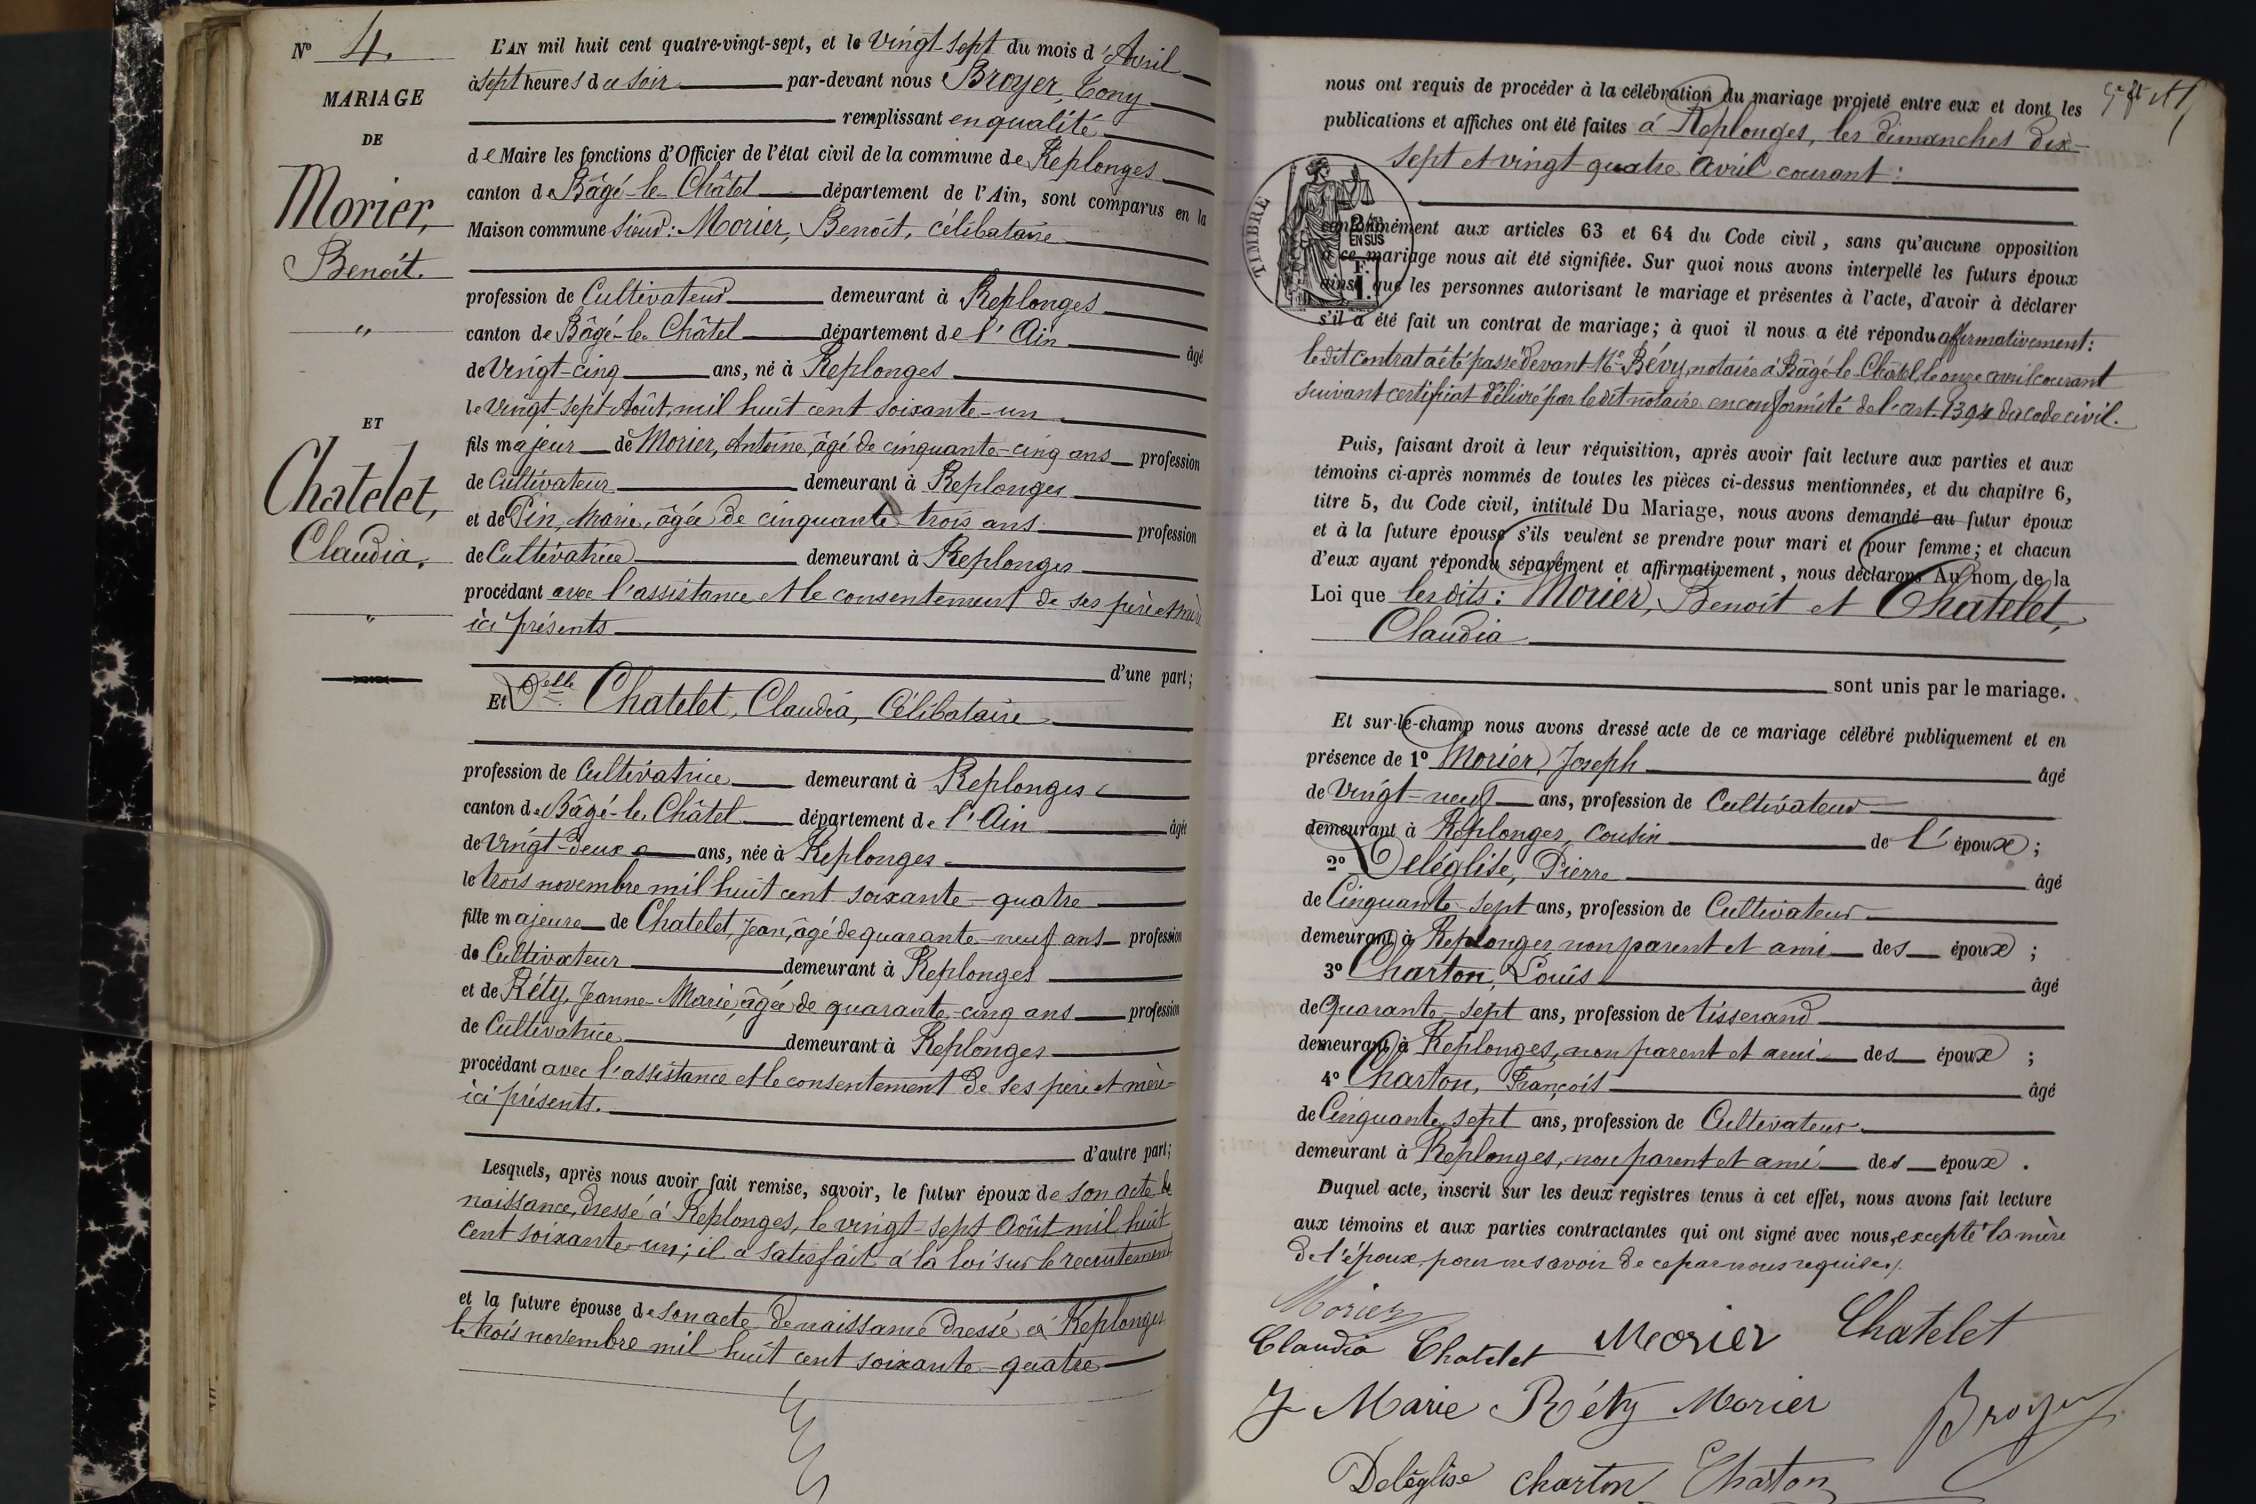 N° 4.
MARIAGE
DE
Morier,
Benoit.
"
ET
Chatelet,
Claudia.
"
L'AN mil huit cent quatre-vingt-sept, et le Vingt-sept du mois d'Avril
à sept heures du soir par-devant nous Broyer, Tony
remplissant en qualité
de Maire les fonctions d'Officier de l'état civil de la commune de Replonges
canton de Bâgé-le-Châtel département de l'Ain, sont comparus en la
Maison commune Sieur: Morier, Benoît, célibataire
profession de Cultivateur demeurant à Replonges
canton de Bâgé-le-Châtel département de l'Ain âgé
de Vingt-cinq ans, né à Replonges
le Vingt-sept Août, mil huit cent soixante-un
fils majeur de Morier, Antoine, âgé de cinquante-cinq ans profession
de Cultivateur demeurant à Replonges
et de Pin, Marie, âgée de cinquante trois ans profession
de Cultivatrice demeurant à Replonges
procédant avec l'assistance et le consentement de ses père et mère
ici présents
d'une part;
Et Delle Chatelet, Claudia, Célibataire
profession de Cultivatrice demeurant à Replonges
canton de Bâgé-le-Châtel département de l'Ain âgée
de Vingt-deux ans, née à Replonges
le trois novembre mil huit cent soixante-quatre
fille majeure de Chatelet, Jean, âgé de quarante-neuf ans profession
de Cultivateur demeurant à Replonges
et de Réty, Jeanne-Marie, âgée de quarante-cinq ans profession
de Cultivatrice demeurant à Replonges
procédant avec l'assistance et le consentement de ses père et mère
ici présents.
d'autre part;
Lesquels, après nous avoir fait remise, savoir, le futur époux de son acte de
naissance, dressé à Replonges, le vingt-sept Août mil huit
cent soixante-un; il a satisfait à la loi sur le recrutement
et la future épouse de son acte de naissance dressé à Replonges
le trois novembre mil huit cent soixante-quatre
nous ont requis de procéder à la célébration du mariage projeté entre eux et dont les
publications et affiches ont été faites à Replonges, les dimanches dix-
sept et vingt quatre avril courant:
TIMBRE
2/10
EN SUS
F.
1.
conformément aux articles 63 et 64 du Code civil, sans qu'aucune opposition
à ce mariage nous ait été signifiée. Sur quoi nous avons interpellé les futurs époux
ainsi que les personnes autorisant le mariage et présentes à l'acte, d'avoir à déclarer
s'il a été fait un contrat de mariage; à quoi il nous a été répondu affirmativement:
ledit contrat a été passé devant Me Bévy, notaire à Bâgé-le-Châtel, le onze avril courant
suivant certificat délivré par ledit notaire en conformité de l'art. 1394 du code civil.
Puis, faisant droit à leur réquisition, après avoir fait lecture aux parties et aux
témoins ci-après nommés de toutes les pièces ci-dessus mentionnées, et du chapitre 6,
titre 5, du Code civil, intitulé Du Mariage, nous avons demandé au futur époux
et à la future épouse s'ils veulent se prendre pour mari et pour femme; et chacun
d'eux ayant répondu séparément et affirmativement, nous déclarons Au nom de la
Loi que lesdits: Morier, Benoît et Chatelet,
Claudia
sont unis par le mariage.
Et sur-le-champ nous avons dressé acte de ce mariage célébré publiquement et en
présence de 1° Morier, Joseph âgé
de Vingt-neuf ans, profession de Cultivateur
demeurant à Replonges, cousin de l'époux;
2° Deléglise, Pierre âgé
de Cinquante-sept ans, profession de Cultivateur
demeurant à Replonges non parent et ami des époux;
3° Charton, Louis âgé
de Quarante-sept ans, profession de tisserand
demeurant à Replonges, non parent et ami des époux;
4° Charton, François âgé
de Cinquante sept ans, profession de Cultivateur
demeurant à Replonges, non parent et ami des époux.
Duquel acte, inscrit sur les deux registres tenus à cet effet, nous avons fait lecture
aux témoins et aux parties contractantes qui ont signé avec nous, excepté la mère
de l'époux, pour ne savoir de ce par nous requise./.
Morier
Claudia Chatelet Morier Chatelet
J Marie Réty Morier Broyer
Deléglise Charton Charton